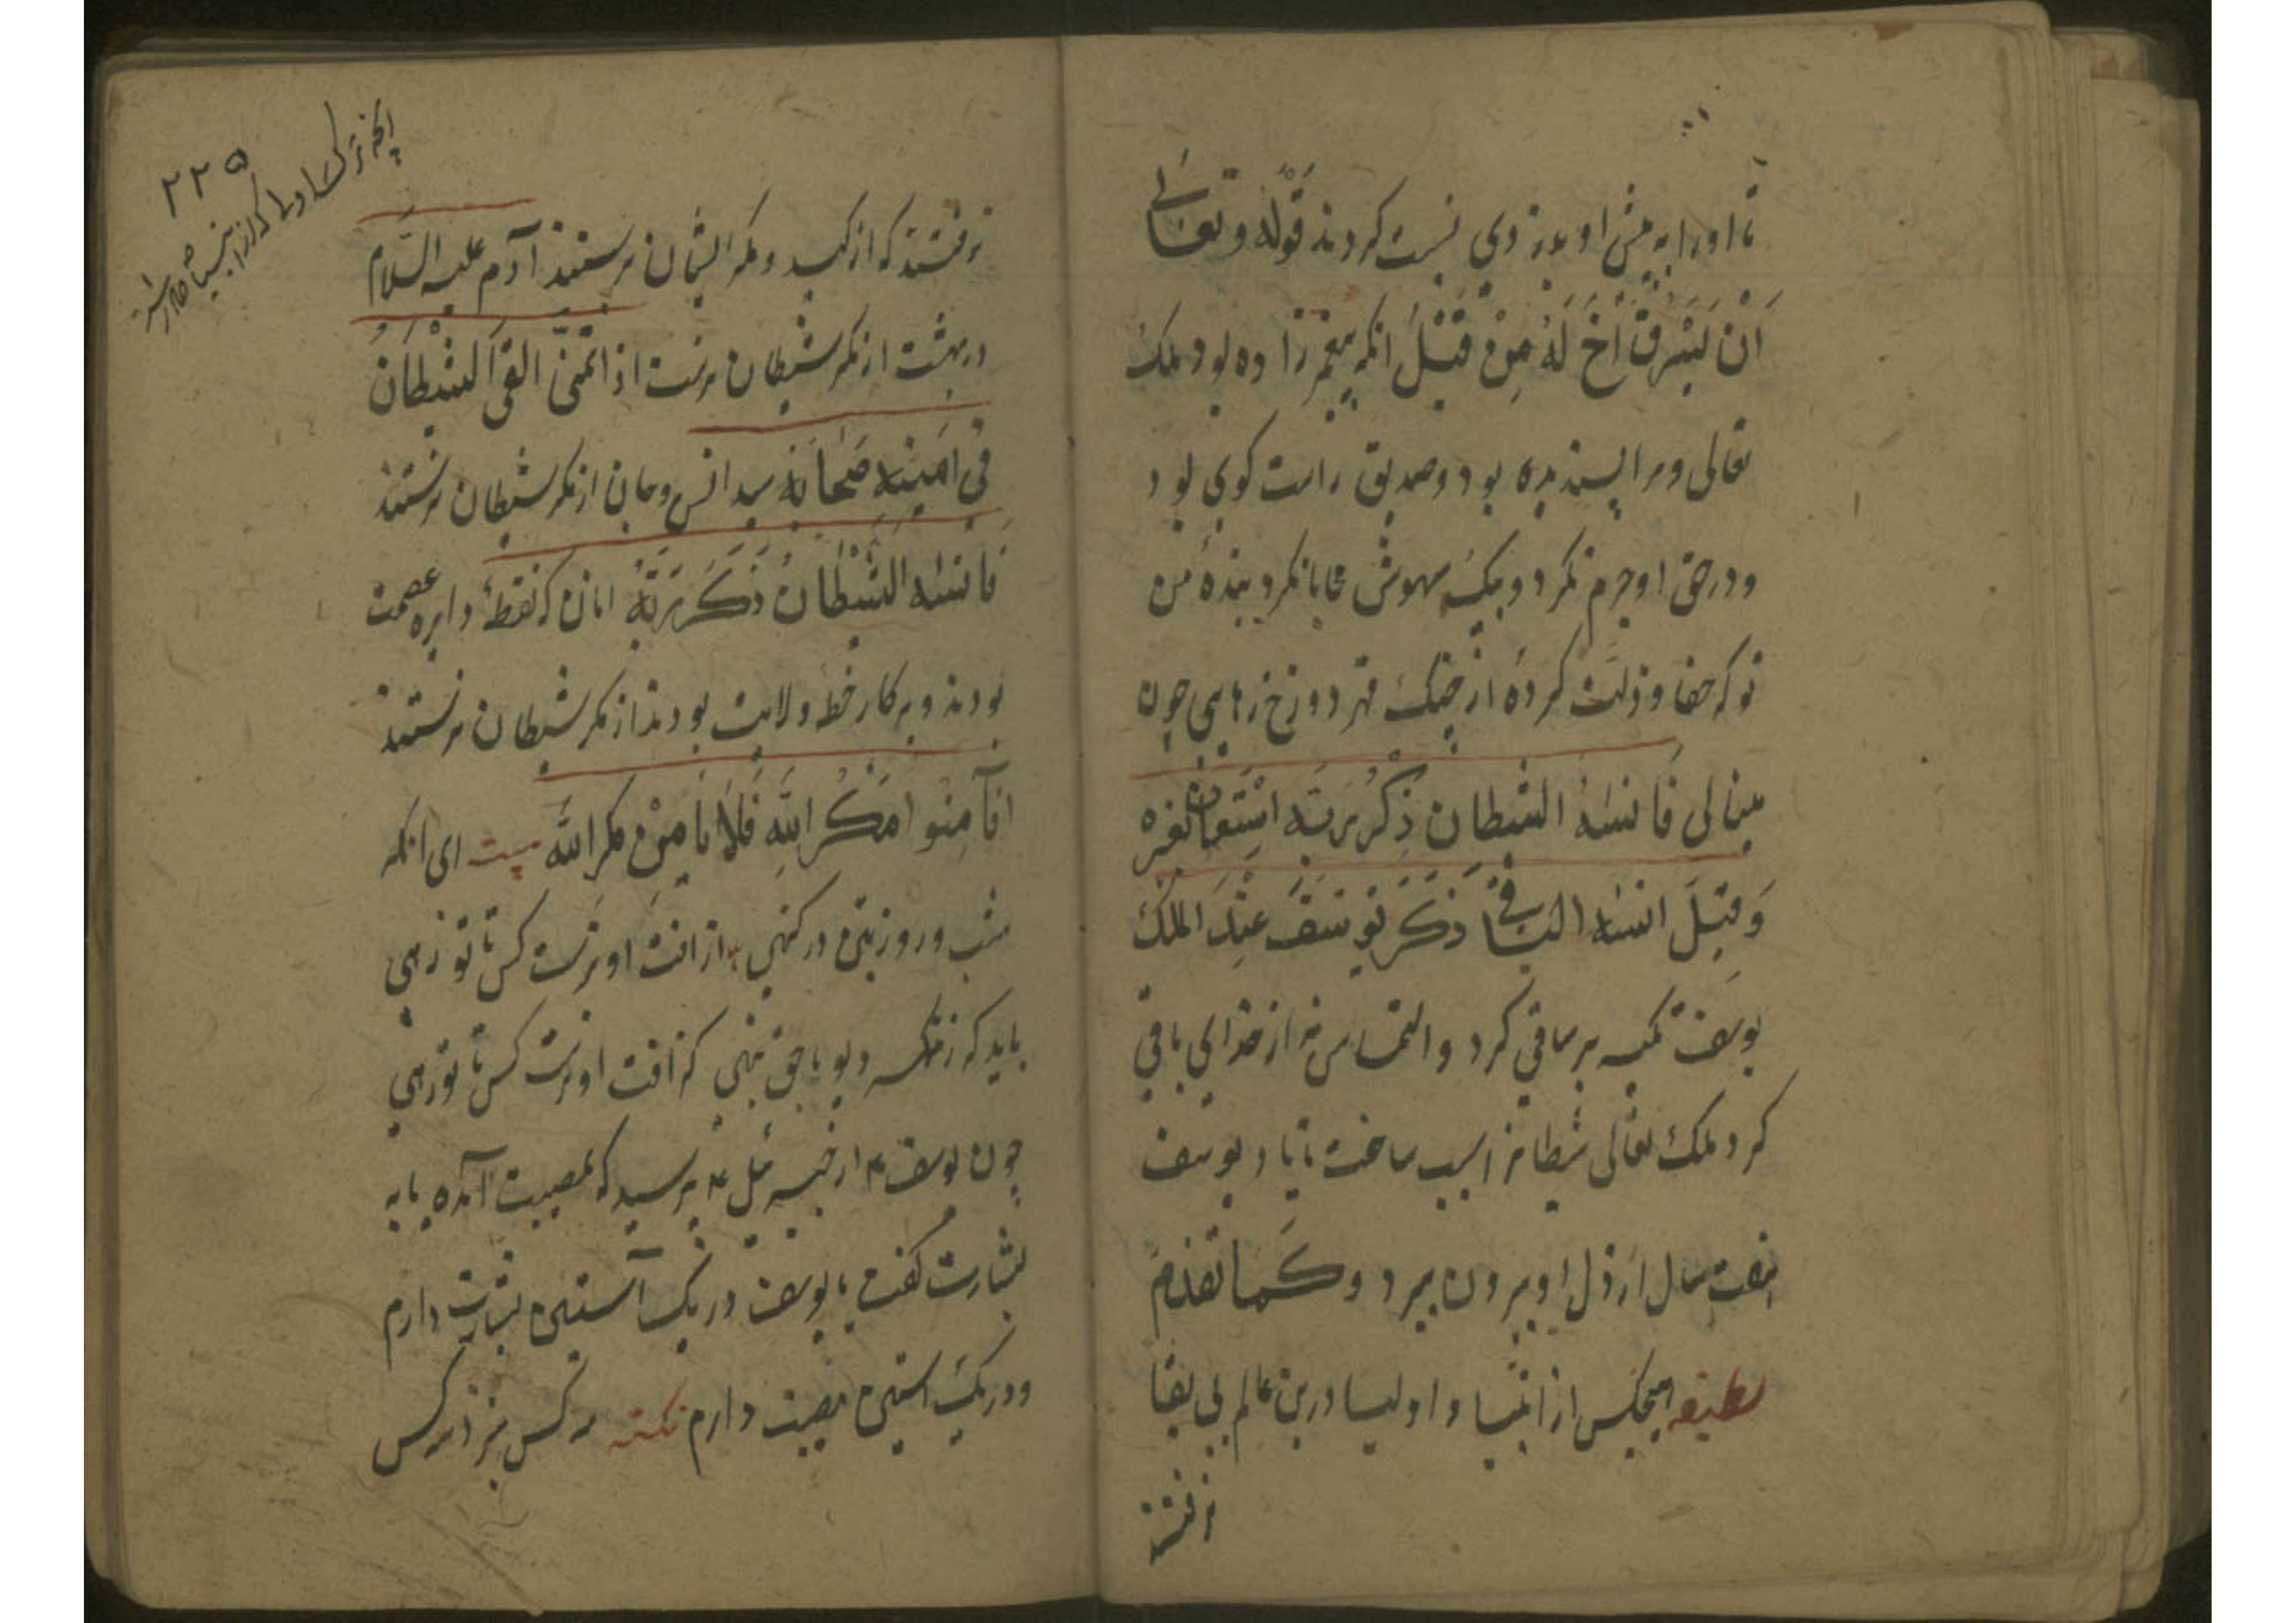 تا او را به پیش او بدزدی نسبت کردند قوله و تعالی
اَنْ یَسْرِقْ اَخٌ لَهُ مِنْ قَبْلُ انکه پیغمبرزاده بود ملک
تعالی ورا پسندیده بود و صدیق راست کوی بود
و در حق او جرم نکرد و بیک سهوش محابا نکرد بنده من
تو که جفا و زلت کرده از جنک قهر دوزخ رهایی چون
فَانسٰهُ الشیطان ذِکْرَ رَبِّه اسْتَعان بغیره
وَ قیلَ انسٰه الساقی ذکَرَ یوسَفَ عِنْدَ الملک
یوسف تکیه بر ساقی کرد و التماس نه از خدای باقی
کرد ملک تعالی شیطانرا سبب ساخت تا یاد یوسف
هفت سال از دل او بیرون ببرد و کَما تقدم
لطیفه هیچکس از انبیا و اولیا درین عالم بی بقا
نرفتند
۲۲۵
نرفتند که از کید و مکر ایشان نرستند آدم علیه السَّلام
در بهشت از مکر شیطان نرست اذا تمنّی القی الشیْطَانُ
فی امنیته سید انس و جان از مکر شیطان نرستند
فَانسٰه الشَّیْطَانُ ذَکَرَ رَبَّهُ انان که نقطهٔ دایره عصمت
بودند و پرکار خط ولایت بودند از مکر شیطان نرستند
افآمِنُو امَکْرَ اللهِ فَلَا یَامِنْ مکر الله بیت ای انکه
شب و روز در کنهی از افت او نرست کس تا تو رهی
باید که ز مکر دیو با حق نهی کز افت او نرست کس تا تو رهی
چون یوسف از جبرئیل پرسید که بمصیبت آمدهٔ یا به
بشارت گفت یا یوسف در یک آستین بشارت دارم
و در یک استین مصیبت دارم نکته هر کس نزد هر کس